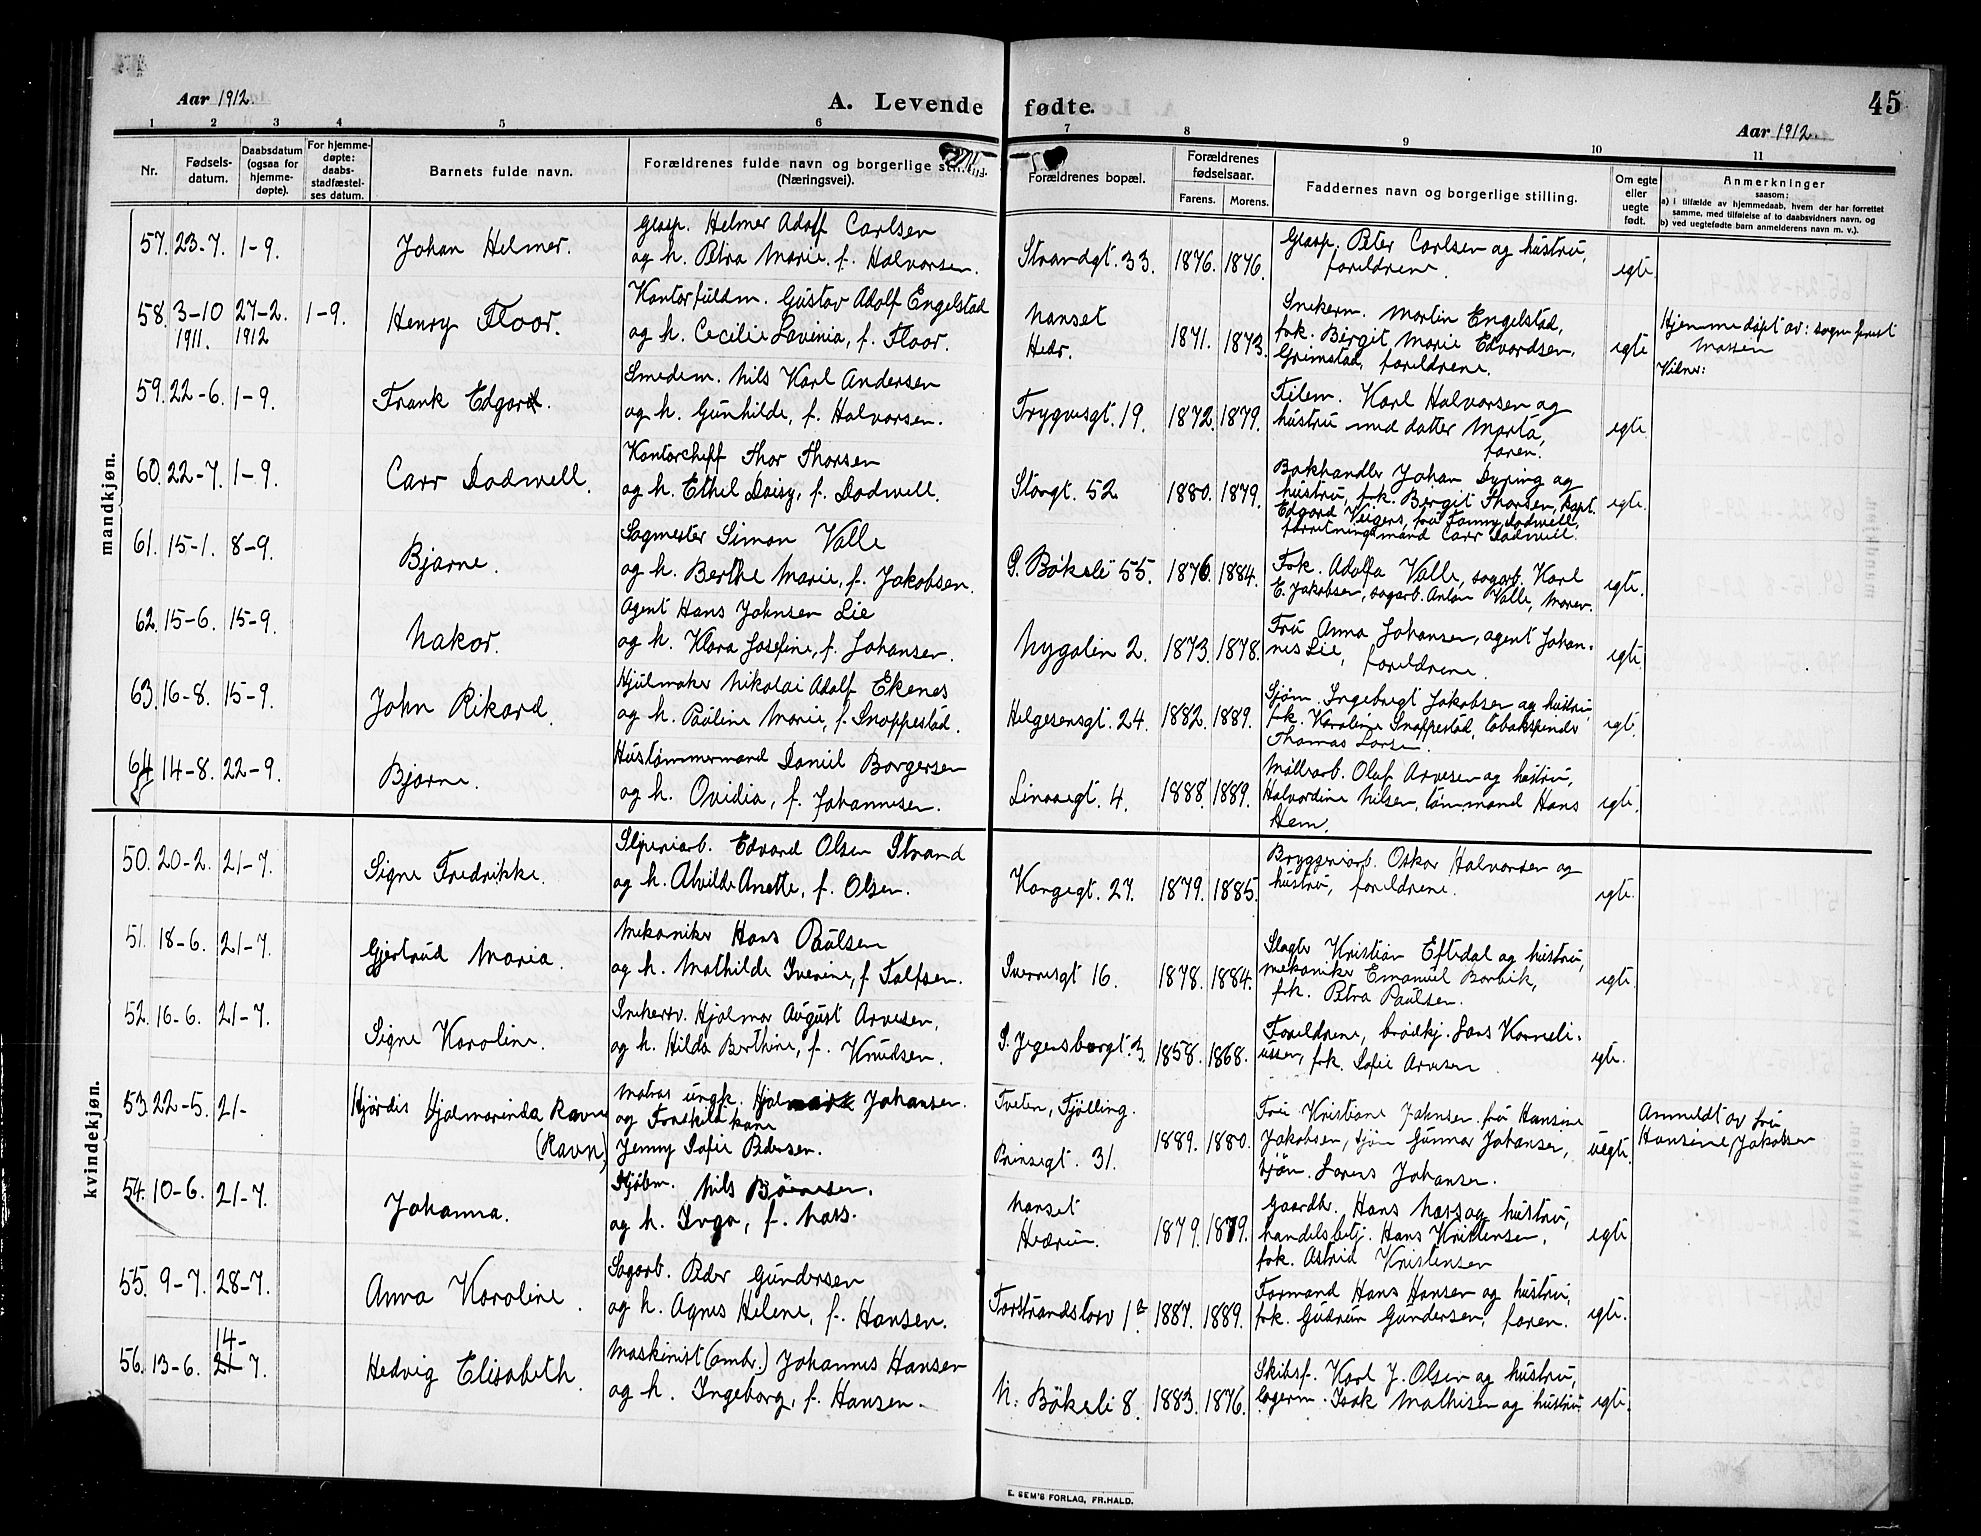 Aar 1912.
A. Levende fødte.
45
Aar 1912.
1 2 3 4 5 6 7 8 9 10 11
Nr.
Fødsels-
datum.
Daabsdatum
(ogsaa for
hjemme-
døpte).
For hjemme-
døpte:
daabs-
stadfæstel-
ses datum.
Barnets fulde navn.
Forældrenes fulde navn og borgerlige
(Næringsvei).
Forældrenes bopæl.
Forældrenes
fødselsaar.
Farens. Morens.
Faddernes navn og borgerlige stilling.
Om egte
eller
uegte
født.
Anmerkninger
saasom:
a) i tilfælde av hjemmedaab, hvem der har forrettet
samme, med tilføielse af to daabsvidners navn, og
b) ved uegtefødte barn anmelderens navn m. v.).
mandkjøn.
57. 23-7. 1-9. Johan Helmer.
Glasp. Helmer Adolf Carlsen
og h. Petra Marie, f. Halvorsen.
Strandgt. 33. 1876. 1876.
Glasp. Peter Carlsen og hustru,
foreldrene.
egte.
58. 3-10 1911. 27-2. 1912 1-9. Henry Floor.
Kontorfuldm. Gustav Adolf Engelstad
og h. Cecilie Lovinia, f. Floor.
Nanset
Hedr.
1871. 1873.
Snekerm. Martin Engelstad,
frk. Birgit Marie Edvardsen,
Grimstad, foreldrene.
egte
Hjemmedøpt av: sogneprest
Massen
59. 22-6. 1-9. Frank Edgar.
Smedem. Nils Karl Andersen
og h. Gunhilde, f. Halvorsen.
Trygvesgt. 19. 1872. 1879.
Filem. Karl Halvorsen og
hustru med datter Marta,
faren.
egte.
60. 22-7. 1-9. Carr Dodwell.
Kontorcheff Thor Thorsen
og h. Ethel Daisy, f. Dodwell.
Storgt. 52 1880. 1879.
Bokhandler Johan Dyring og
hustru, frk. Bergit Thorsen, kapt.
Edgard Veigers, fru Fanny Dodwell,
forretningsmand Carr Dodwell.
egte.
61. 15-1. 8-9. Bjarne.
Sagmester Simon Valle
og h. Berthe Marie, f. Jakobsen.
G. Bökeli 55. 1876 1884.
Frk. Adolfa Valle, sagarb. Karl
E. Jakobsen, sagarb. Anton Valle, moren.
egte.
62. 15-6. 15-9. Hakor.
Agent Hans Johnsen Lie
og h. Klara Josefine, f. Johansen.
Nygalin 2. 1873. 1878.
Fru Anna Johansen, agent Johan-
nes Lie, foreldrene.
egte.
63. 16-8. 15-9. John Rikard.
Hjulmaker Nikolai Adolf Ekenes
og h. Pauline Marie, f. Snoppestad.
Helgesensgt. 24. 1882. 1889.
Sjøm. Ingebregt Jakobsen og hustru,
frk. Karoline Snoppestad, tobakspinder
Thomas Larsen.
egte.
64 14-8. 22-9. Bjarne.
Hustømmermand Daniel Borgersen
og h. Ovidia, f. Johannesen.
Linaaegt. 4. 1888. 1889.
Møllearb. Oluf Arvesen og hustru,
Halvardine Nilsen, tømmand Hans
Hem.
egte.
kvindekjøn.
50. 20-2. 21-7. Signe Fredrikke.
Sliperiarb. Edvard Olsen Strand
og h. Alvilde Anette, f. Olsen.
Kongegt. 27. 1879. 1885.
Bryggeriarb. Oskar Halvorsen og
hustru, foreldrene.
egte.
51. 18-6. 21-7. Gjertrud Maria.
Mekaniker Hans Paulsen
og h. Mathilde Iverine, f. Tolfsen.
Sverresgt 16. 1878. 1884.
Slagter Kristian Eftedal og hustru,
mekaniker Emanuel Borbik,
frk. Petra Paulsen.
egte.
52. 16-6. 21-7. Signe Karoline.
Snekersv. Hjalmar August Arvesen,
og h. Hilda Berthine, f. Knudsen.
S. Jegersborgt. 3 1858. 1868.
Foreldrene, brødkj. Lars Korneli-
ussen, frk. Sofie Arvesen
egte.
53. 22-5. 21- Hjørdis Hjalmarinda Ravn
(Ravn)
Matros ungk. Hjalmar Johansen.
og Fraskilt kone
Jenny Sofie Pedersen.
Tveten, Tjølling.
Prinsegt. 31.
1889. 1880.
Fru Kristiane Johnsen fru Hansine
Jakobsen, sjøm Gunnar Johansen,
sjøm. Lorens Johansen.
uegte.
Anmeldt av fru
Hansine Jakobsen
54. 10-6. 21-7. Johanna.
Kjøbm. Nils Börresen.
og h. Inga, f. Nass.
Nanset
Hvarum.
1879. 1879.
Gaardbr. Hans Nass og hustru,
handelsbetj. Hans Kristensen,
frk. Astrid Kristensen
egte
55. 9-7. 28-7. Anna Karoline.
Sagarb. Peder Gundersen
og h. Agnes Helene, f. Hansen.
Torstrandstorv 1a 1887. 1889.
Formand Hans Hansen og hustru,
frk. Gudrun Gundersen, faren.
egte.
56. 13-6. 14-
21-7. Hedvig Elisabeth.
Maskinist (ombr.) Johannes Hansen
og h. Ingeborg, f. Hansen.
N. Bökeli 8. 1883. 1876.
Skibsf. Karl J. Olsen og hustru,
lagerm. Isak Mathisen og hustru
egte.
E. SEM'S FORLAG, FR.HALD.